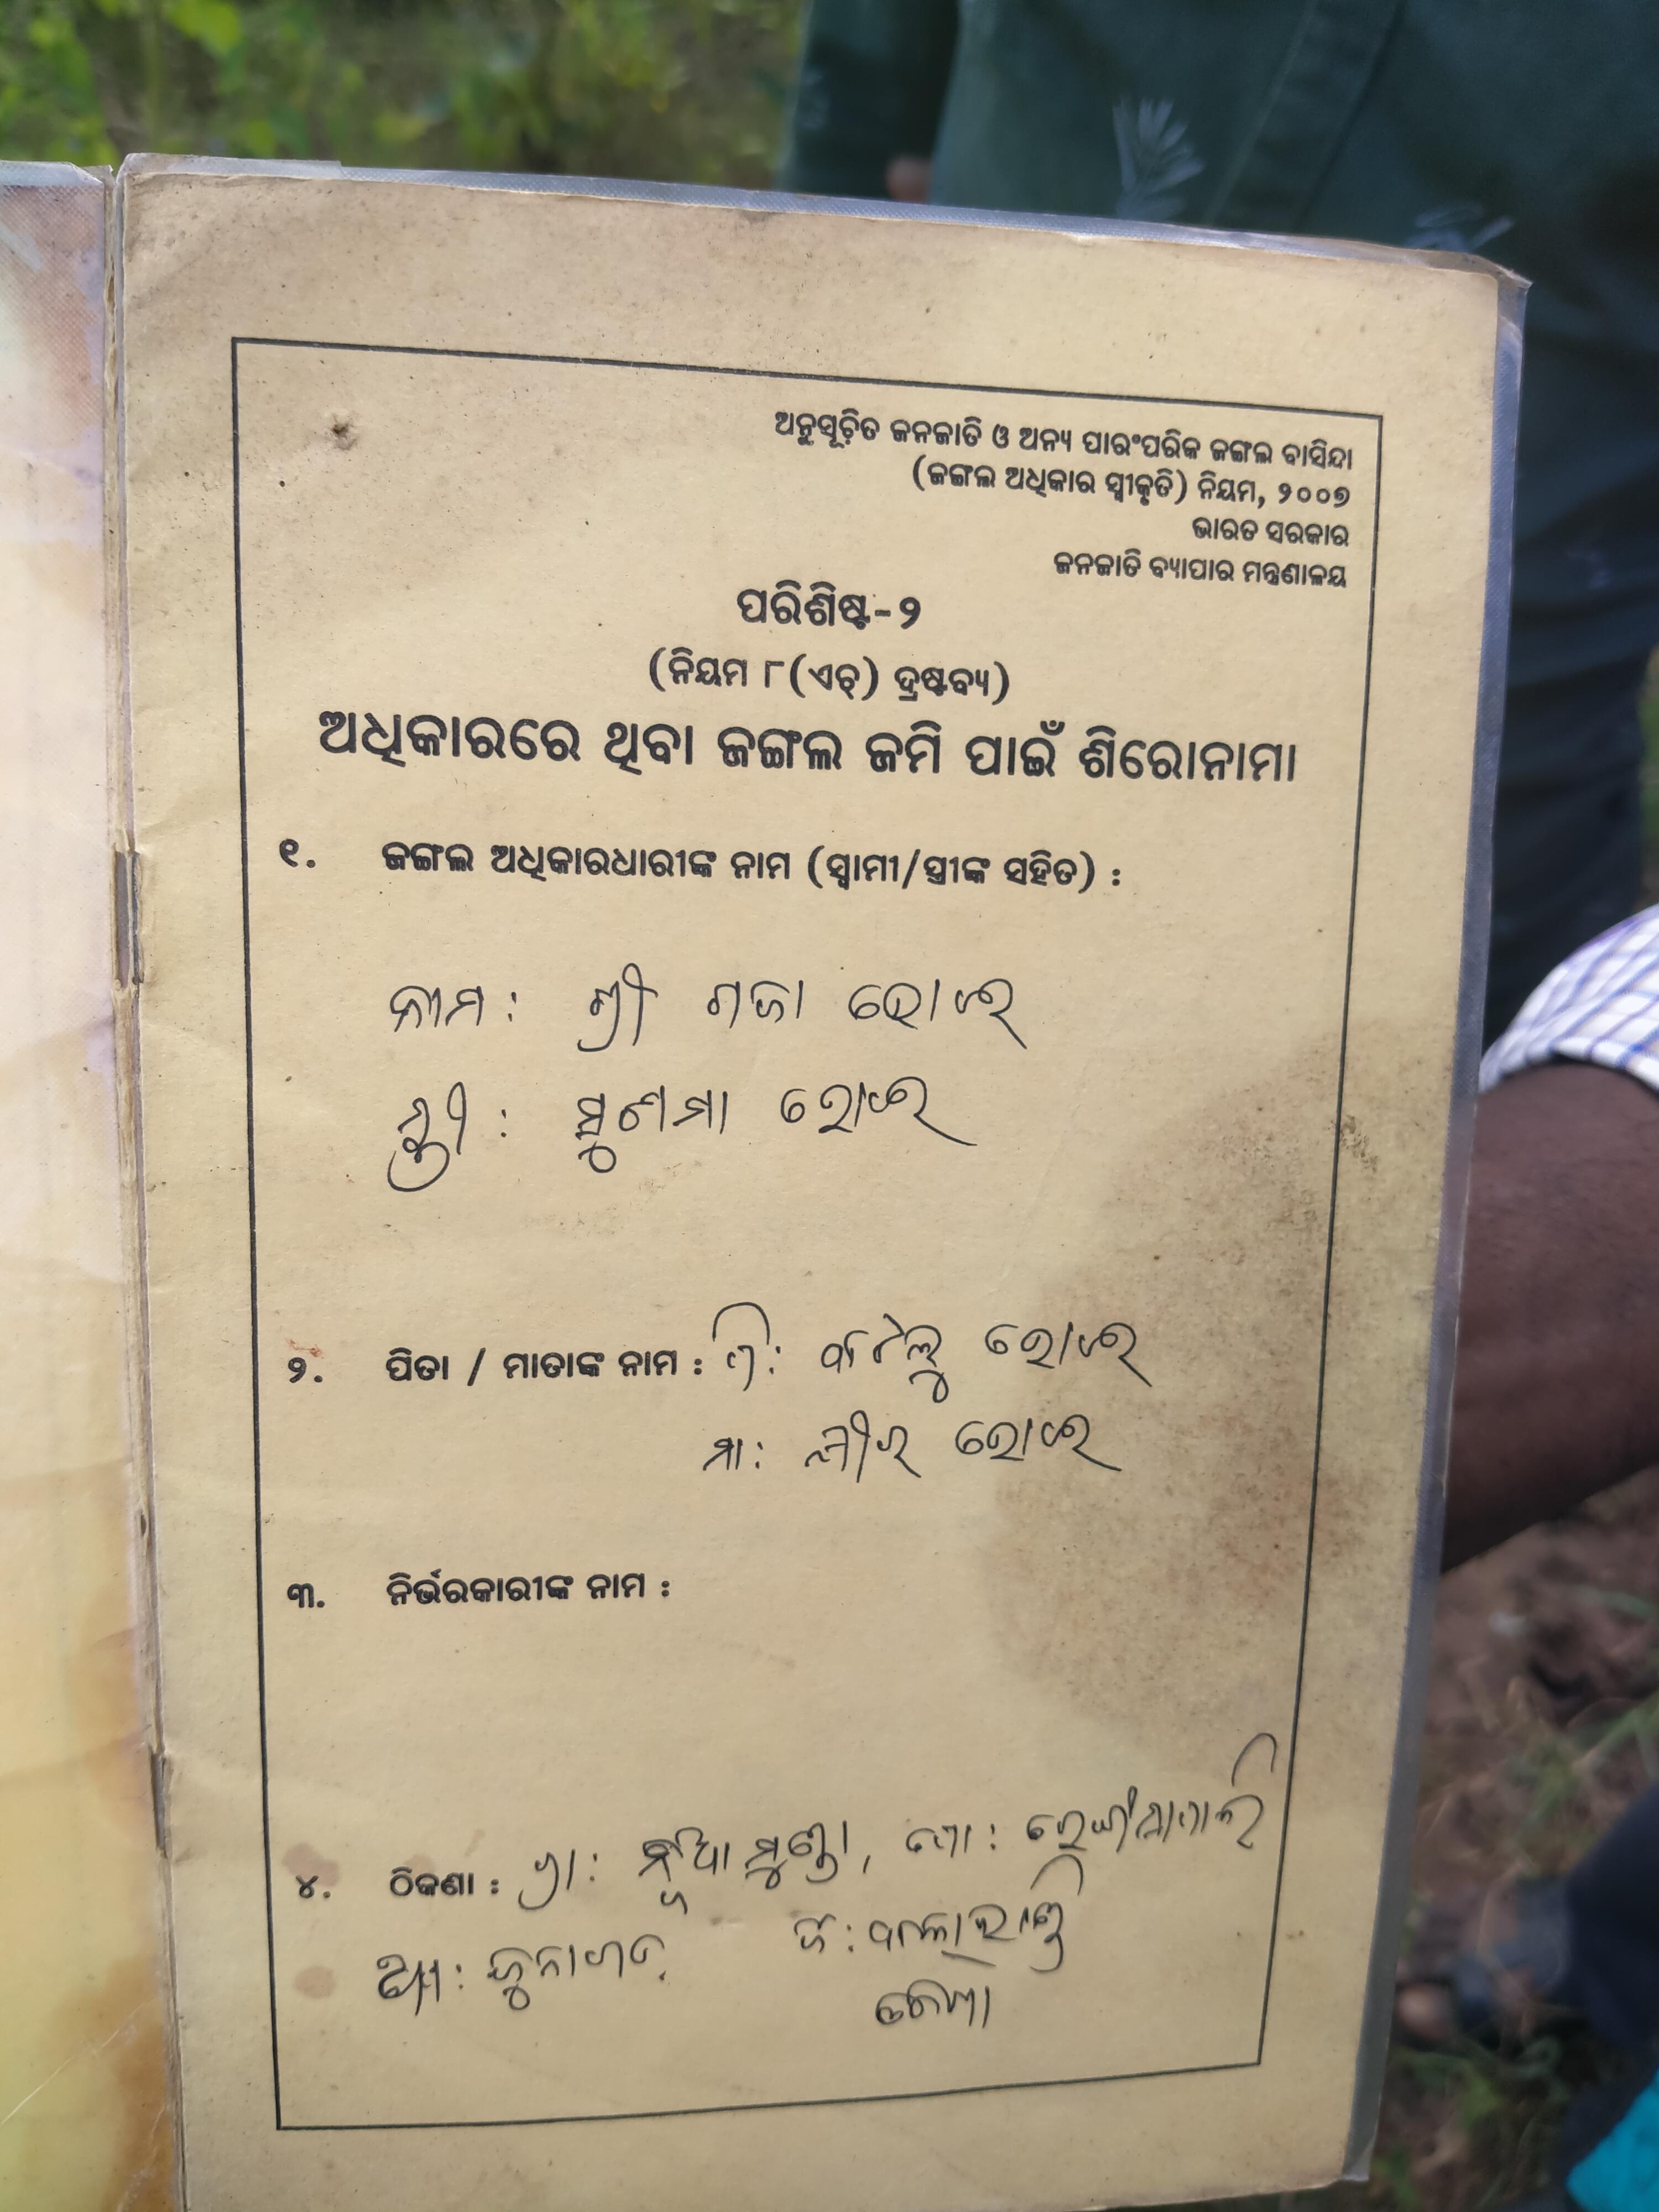 ଅନୁସୂଚିତ ଜନଜାତି ଓ ଅନ୍ୟ ପାରଂପରିକ ଜଙ୍ଗଲ ବାସିନ୍ଦା
(ଜଙ୍ଗଲ ଅଧିକାର ସ୍ୱୀକୃତି) ନିୟମ, ୨୦୦୭
ଭାରତ ସରକାର
ଜନଜାତି ବ୍ୟାପାର ମନ୍ତ୍ରଣାଳୟ
ପରିଶିଷ୍ଟ-୨
(ନିୟମ ୮(ଏଚ୍) ଦ୍ରଷ୍ଟବ୍ୟ)
ଅଧିକାରରେ ଥିବା ଜଙ୍ଗଲ ଜମି ପାଇଁ ଶିରୋନାମା
୧. ଜଙ୍ଗଲ ଅଧିକାରଧାରୀଙ୍କ ନାମ (ସ୍ୱାମୀ/ସ୍ତ୍ରୀଙ୍କ ସହିତ) :
ନାମ : ଶ୍ରୀ ଗଜା
ସ୍ତ୍ରୀ :
୨. ପିତା / ମାତାଙ୍କ ନାମ : ପି :
ମା :
୩. ନିର୍ଭରକାରୀଙ୍କ ନାମ :
୪. ଠିକଣା : ଗ୍ରା : ପୋ :
ଥା : ଜୁନାଗଡ଼ ଜି : କଳାହାଣ୍ଡି